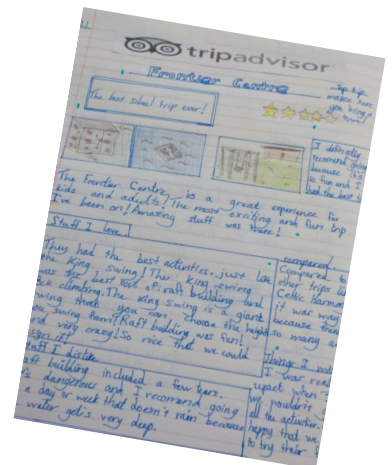 tripadvisor
Frontier Centre
Top tip:
make sure
you bring a
towel
The best school trip ever!
I definitely
recomend going
because it's
fun and I
had the best
The Frontier Centre is a great experience for
kids and adults! The most exciting and fun trip
I've been on! Amazing stuff was there!
Stuff I love
They had the best activities, just like
the King swing! The King swing
was the best out of: raft building and
climbing. The King swing is a giant
swing that you can choose the height
you swing from! Raft budding was fun!
and very crazy! So nice that we could
Stuff I dislike
raft building included a few tears.
dangerous and I recomend going
a day or week that doesn't rain because
water get's very deep.
compared
Compared to
other trips
Celtic harmony
it was way
because there
so many
Things I
I was
upset when
we couldn't
all the activities
happy that we
to try their